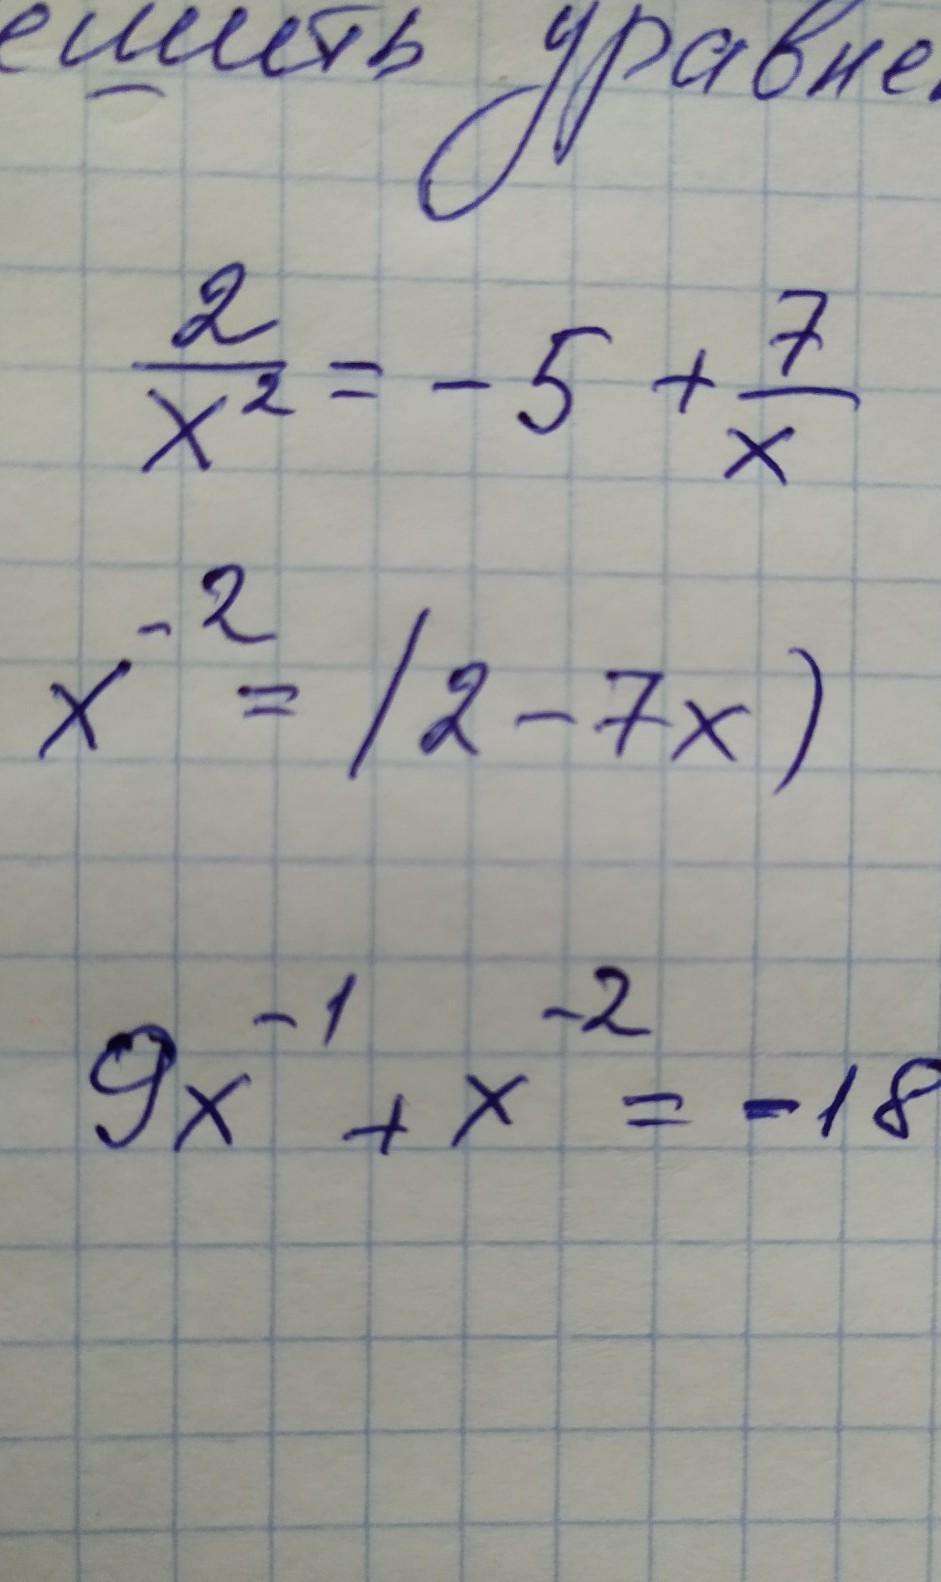 ешить уравне
2/x² = -5 + 7/x
x⁻² = (2 - 7x)
9x⁻¹ + x⁻² = -18